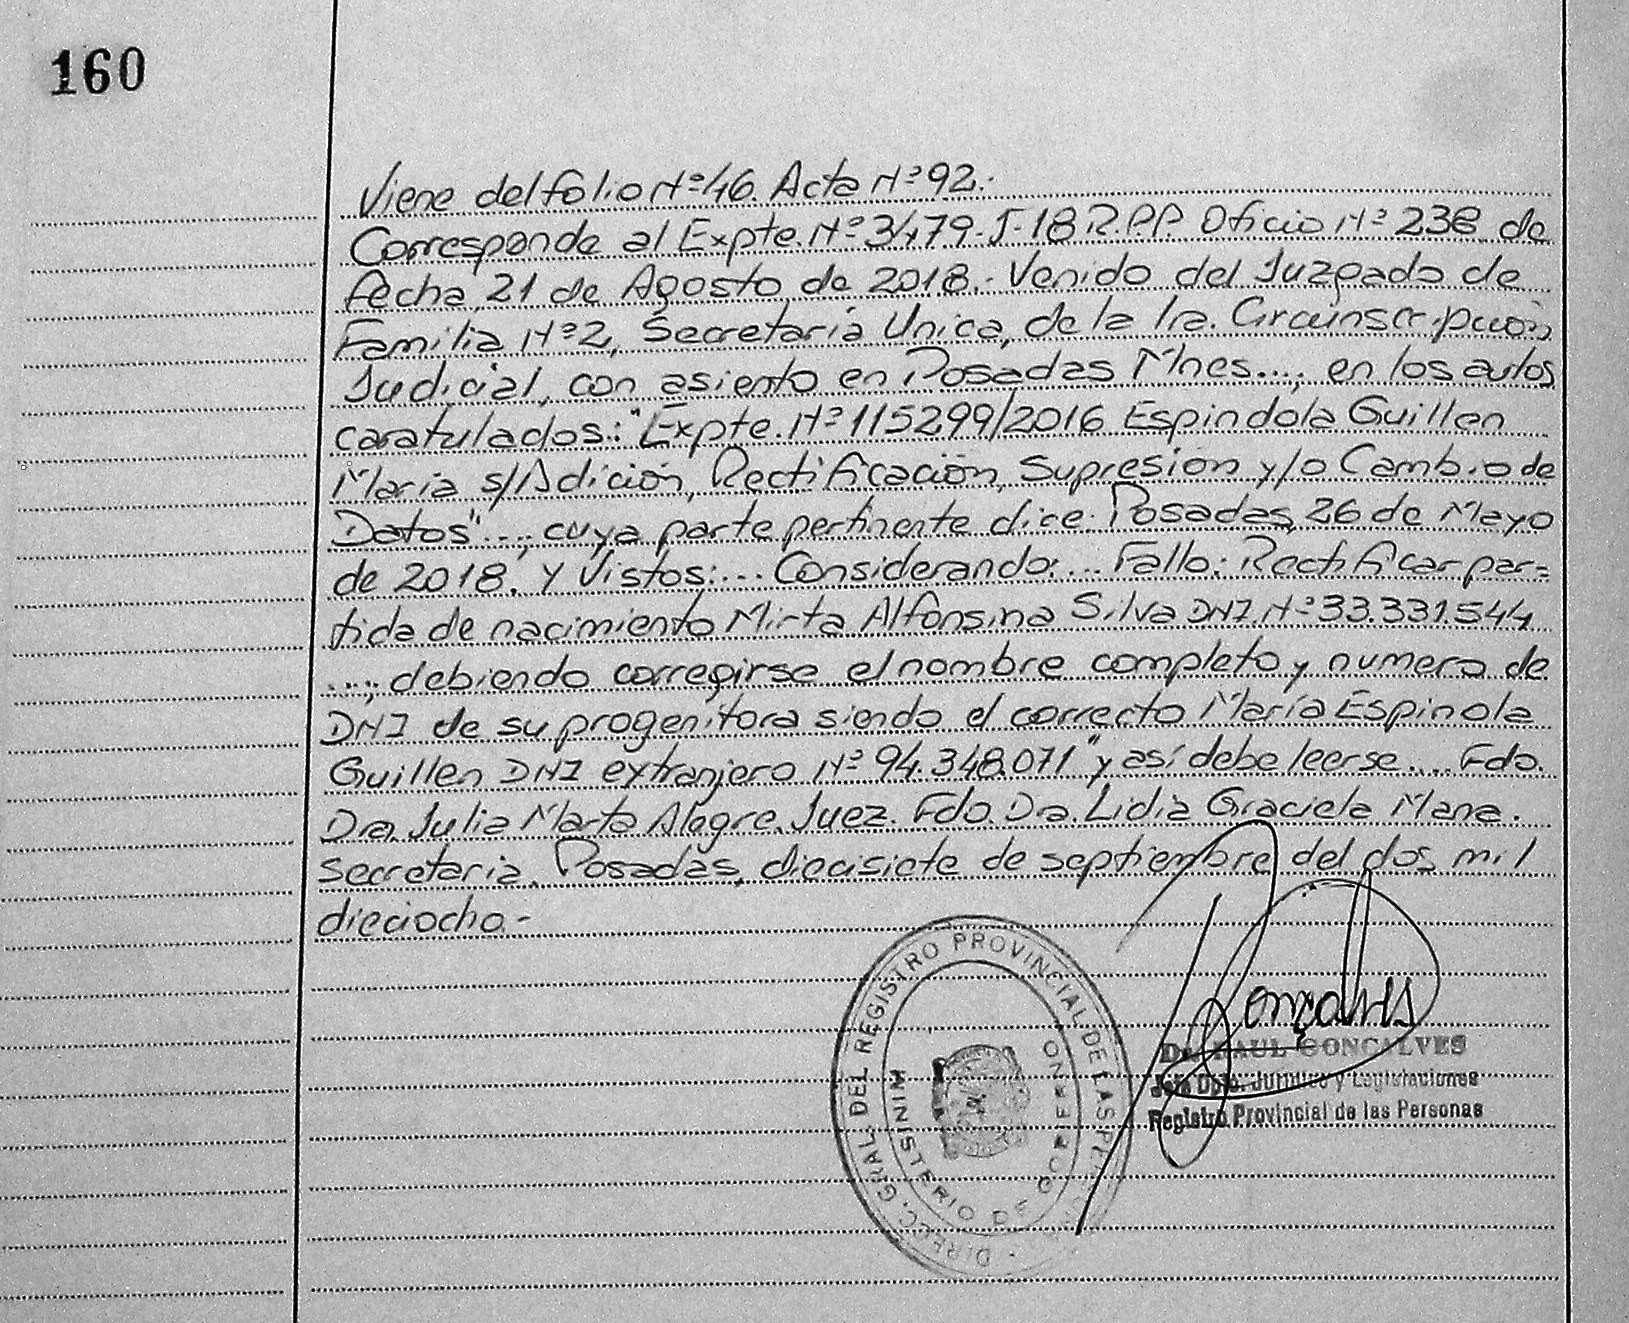 160
Viene del folio Nº 46. Acta Nº 92.-
Corresponde al Expte. Nº 3479-J-18 R.P.P. Oficio Nº 238 de
fecha 21 de Agosto de 2018.- Venido del Juzgado de
Familia Nº 2, Secretaría Unica, de la 1ra. Circunscripción
Judicial, con asiento en Posadas Mnes...., en los autos
caratulados: "Expte. Nº 115299/2016 Espindola Guillen
Maria s/Adición, Rectificación, Supresión y/o Cambio de
Datos"..., cuya parte pertinente dice: Posadas, 26 de Mayo
de 2018. Y Vistos:... Considerando:... Fallo: Rectificar par=
tida de nacimiento Mirta Alfonsina Silva DNI. Nº 33.331.544
..., debiendo corregirse el nombre completo y numero de
DNI de su progenitora siendo el correcto María Espinola
Guillen DNI extranjero Nº 94.348.071" y así debe leerse.... Fdo.
Dra. Julia Marta Alegre. Juez. Fdo. Dra. Lidia Graciela Mana.
secretaria. Posadas, diecisiete de septiembre del dos mil
dieciocho.-
DIRECC. GRAL. DEL REGISTRO PROVINCIAL DE LAS
MINISTERIO DE GOBIERNO
Gonçalves
Dr. RAUL GONCALVES
Jefe Dpto. Jurídico y Legislaciones
Registro Provincial de las Personas